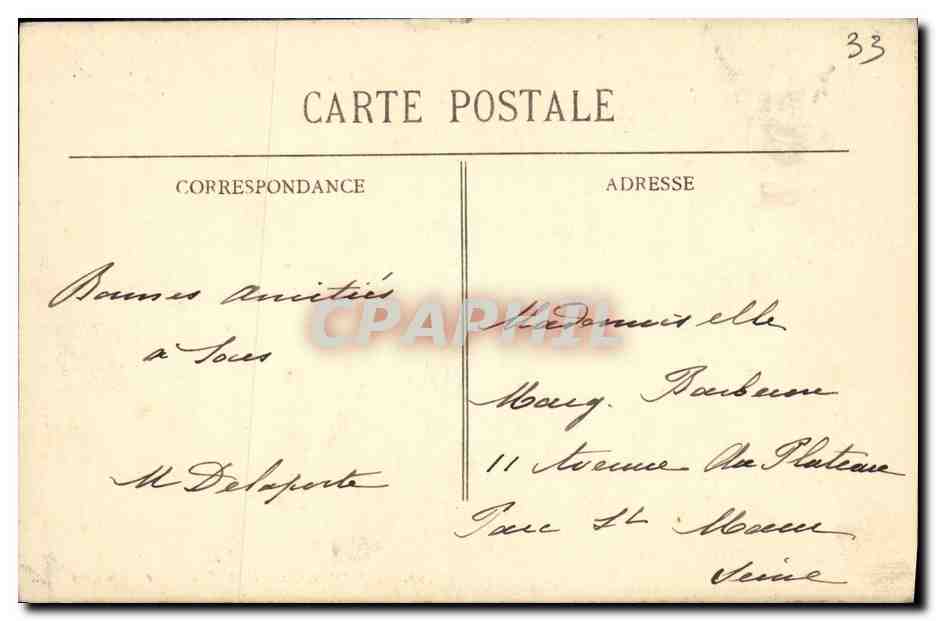 33
CARTE POSTALE
CORRESPONDANCE
ADRESSE
Bonnes amitiés
à Tous
M Delaporte
CPAPHIL
Mademoiselle
Marg.
11 Avenue du Plateau
Parc St Maur
Seine